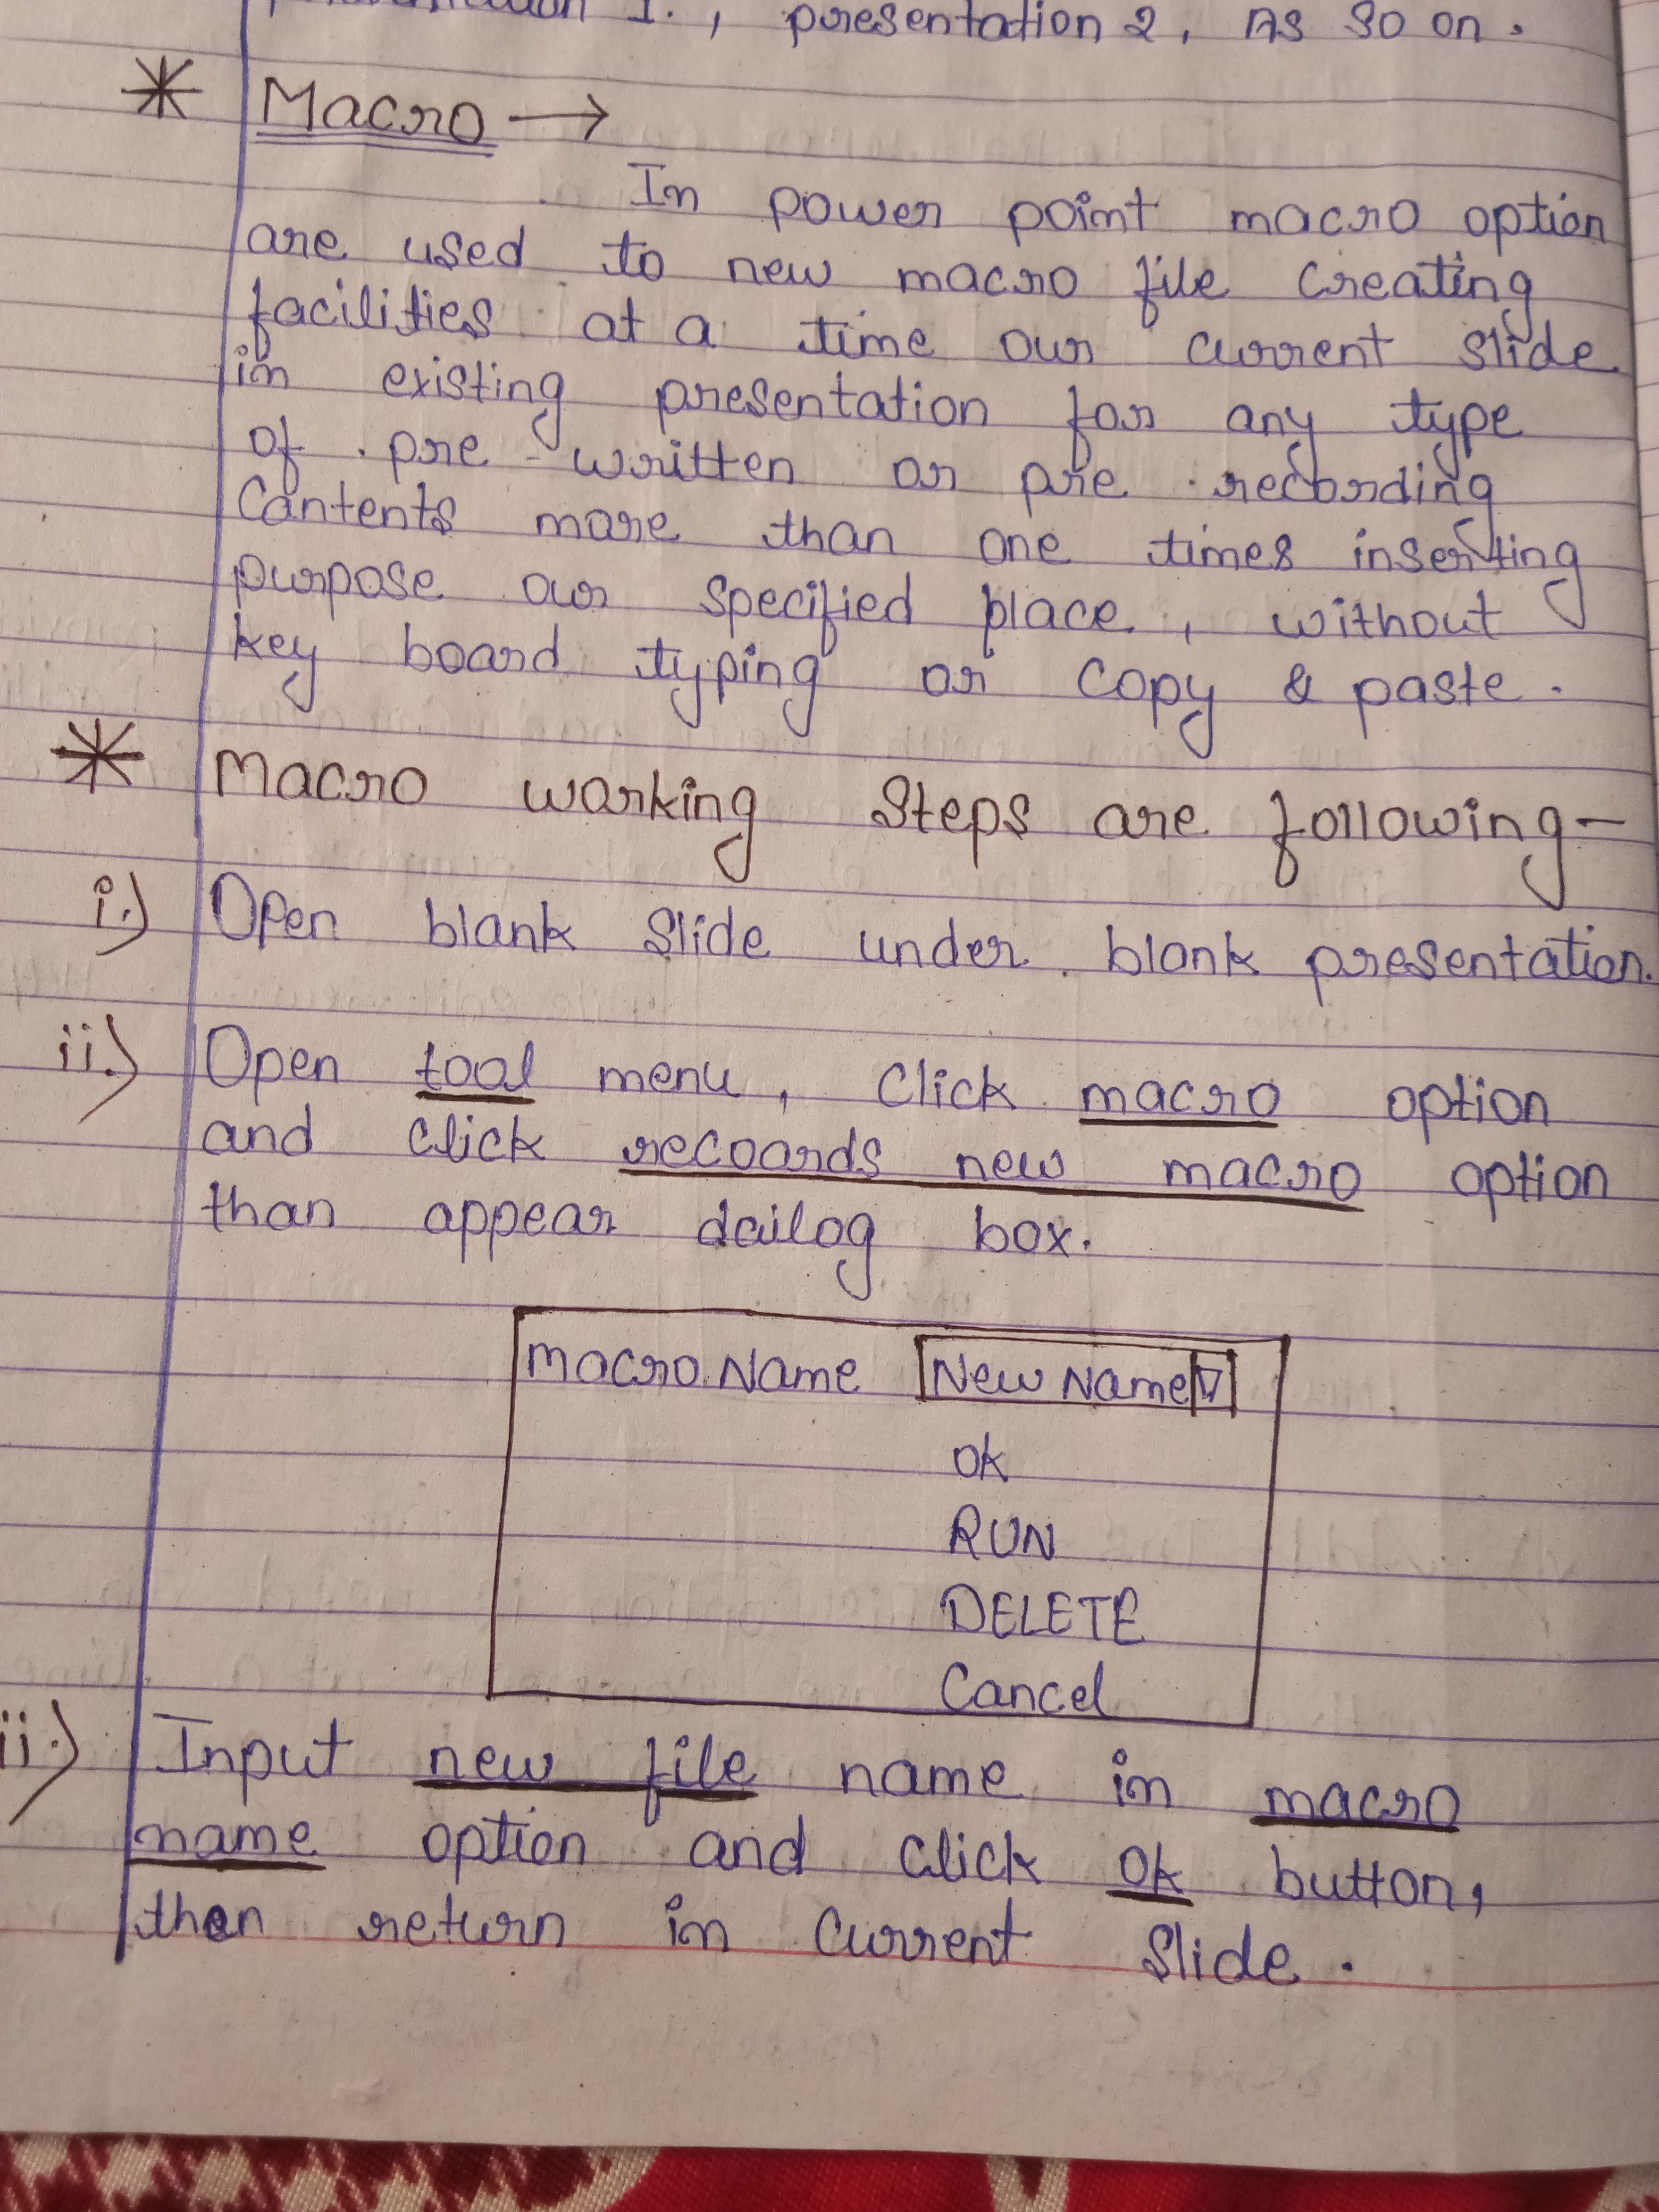 1. , presentation 2, As so on.
* Macro →
In power point macro option
are used to new macro file creating
facilities at a time our current slide
in existing presentation for any type
of pre written or pre recording
Contents more than one times inserting
purpose our specified place, without
key board typing or copy & paste.
* Macro working steps are following-
i.) Open blank slide under blank presentation.
ii.) Open tool menu, Click macro option
and click recoards new macro option
than appear dailog box.
Macro Name New Name ▽
ok
RUN
DELETE
Cancel
ii.) Input new file name in macro
name option and click ok button,
then return in current slide.